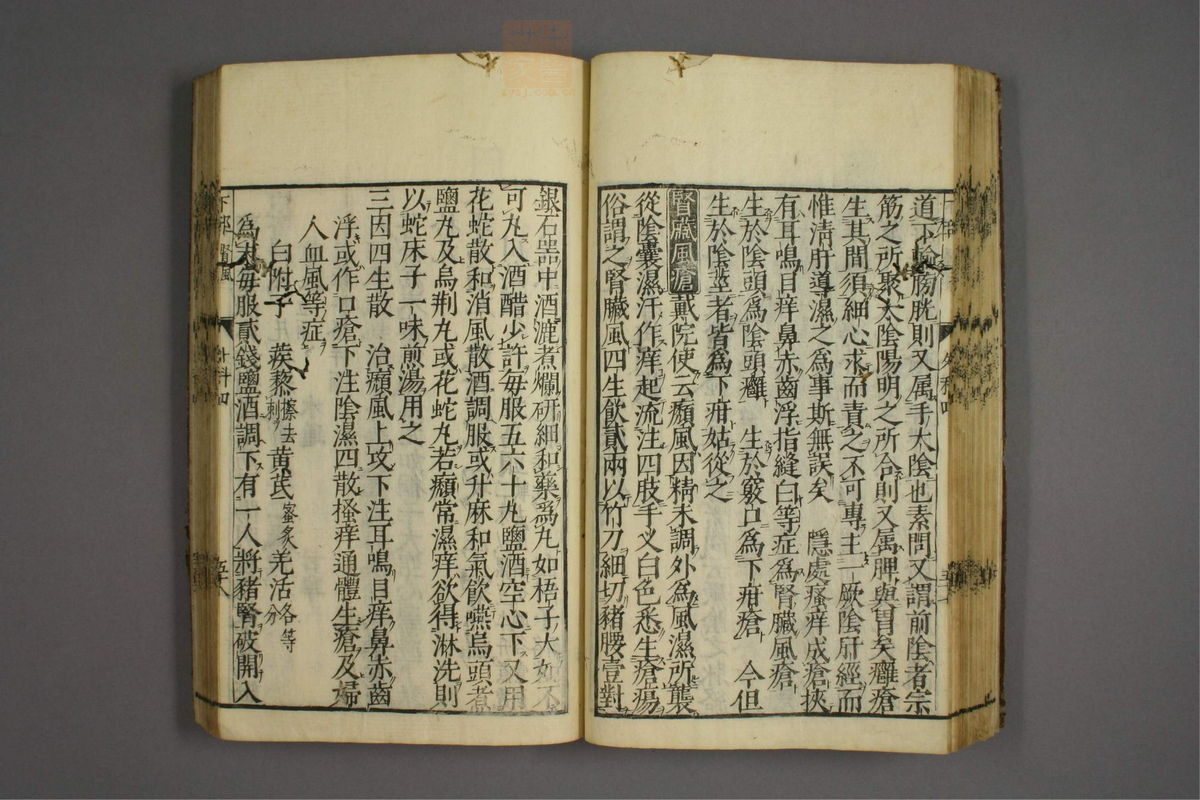 道下膀胱則又属手太陰也素問又謂前陰者宗
筋之所聚太陰陽明之所合則又属脾與胃矣癰瘡
生其間須細心求而責之不可專主一厥陰肝經而
惟清肝導濕之為事斯無誤矣　隱處瘙痒成瘡挾
有耳鳴目痒鼻赤齒浮指縫白等症為腎臟風瘡
生於陰頭為陰頭癰　生於竅口為下疳瘡　今但
生於陰莖者皆為下疳姑從之
腎臟風瘡戴院使云癩風因精未調外為風濕所襲
從陰囊濕汗作痒起流注四肢手义白色悉生瘡瘍
俗謂之腎臟風四生飲貳兩以竹刀細切豬腰壹對
銀石噐中酒漉煮爛研細和藥為丸如梧子大如不
可丸入酒醋少許毎服五六十丸鹽酒空心下又用
花蛇散和消風散酒調服或升麻和氣飲嚥烏頭煮
鹽丸及烏荆丸或花蛇丸若癩常濕痒欲得淋洗則
以蛇床子一味煎湯用之
三因四生散　治癩風上攻下注耳鳴目痒鼻赤齒
浮或作口瘡下注陰濕四散搔痒通體生瘡及婦
人血風等症
白附子　蒺藜搽去刺　黄芪蜜炙　羌活各等分
為末毎服貳錢鹽酒調下有一人將豬腎破開入
下部　腎風　外科四　五十八
外科四